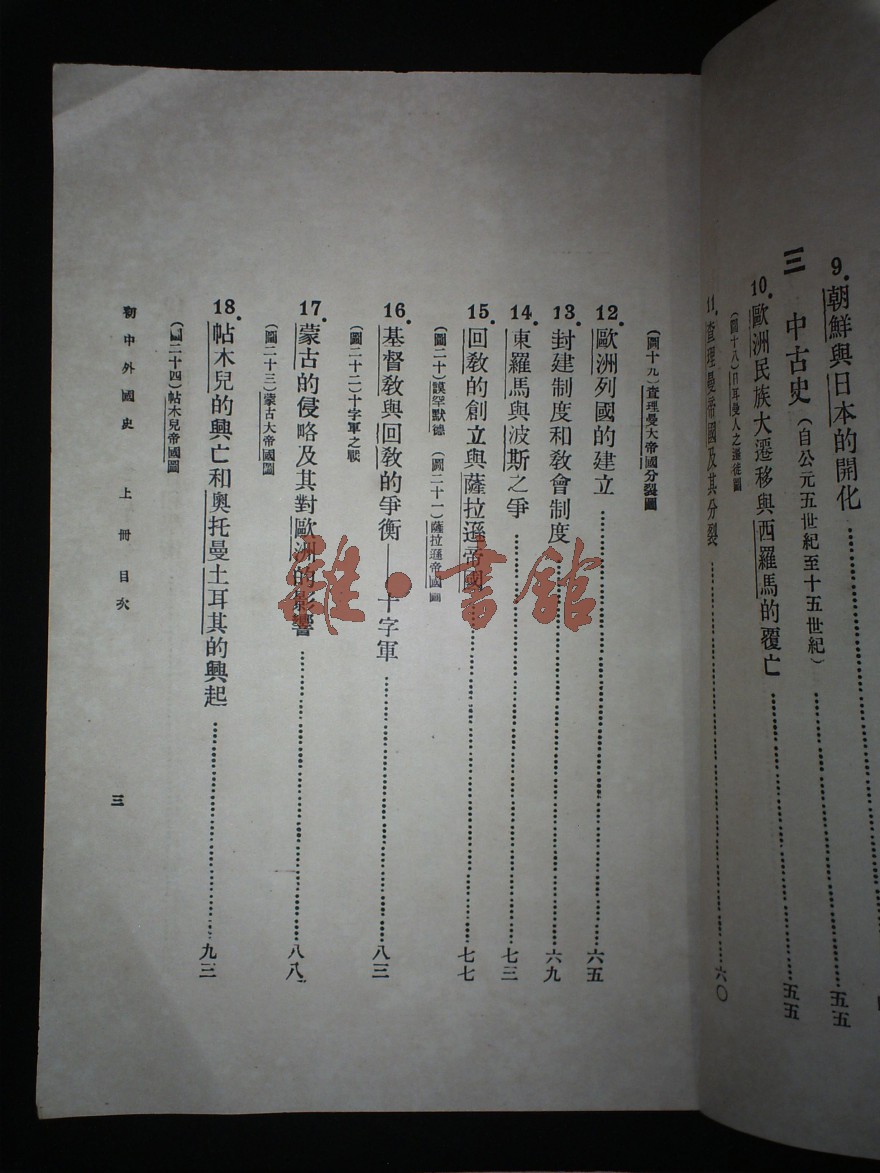 9. 朝鮮與日本的開化…………五五
三 中古史(自公元五世紀至十五世紀)
10. 歐洲民族大遷移與西羅馬的覆亡…………五五
(圖十八)日耳曼人之遷徙圖
11. 查理曼帝國及其分裂…………六〇
(圖十九)查理曼大帝國分裂圖
12. 歐洲列國的建立…………六五
13. 封建制度和敎會制度…………六九
14. 東羅馬與波斯之爭…………七三
15. 回敎的創立與薩拉遜帝國…………七七
(圖二十)謨罕默德 (圖二十一)薩拉遜帝國圖
16. 基督敎與回敎的爭衡——十字軍…………八三
(圖二十二)十字軍之戰
17. 蒙古的侵略及其對歐洲的影響…………八八
(圖二十三)蒙古大帝國圖
18. 帖木兒的興亡和奧托曼土耳其的興起…………九三
(圖二十四)帖木兒帝國圖
初中外國史 上冊目次
三
雜·書館